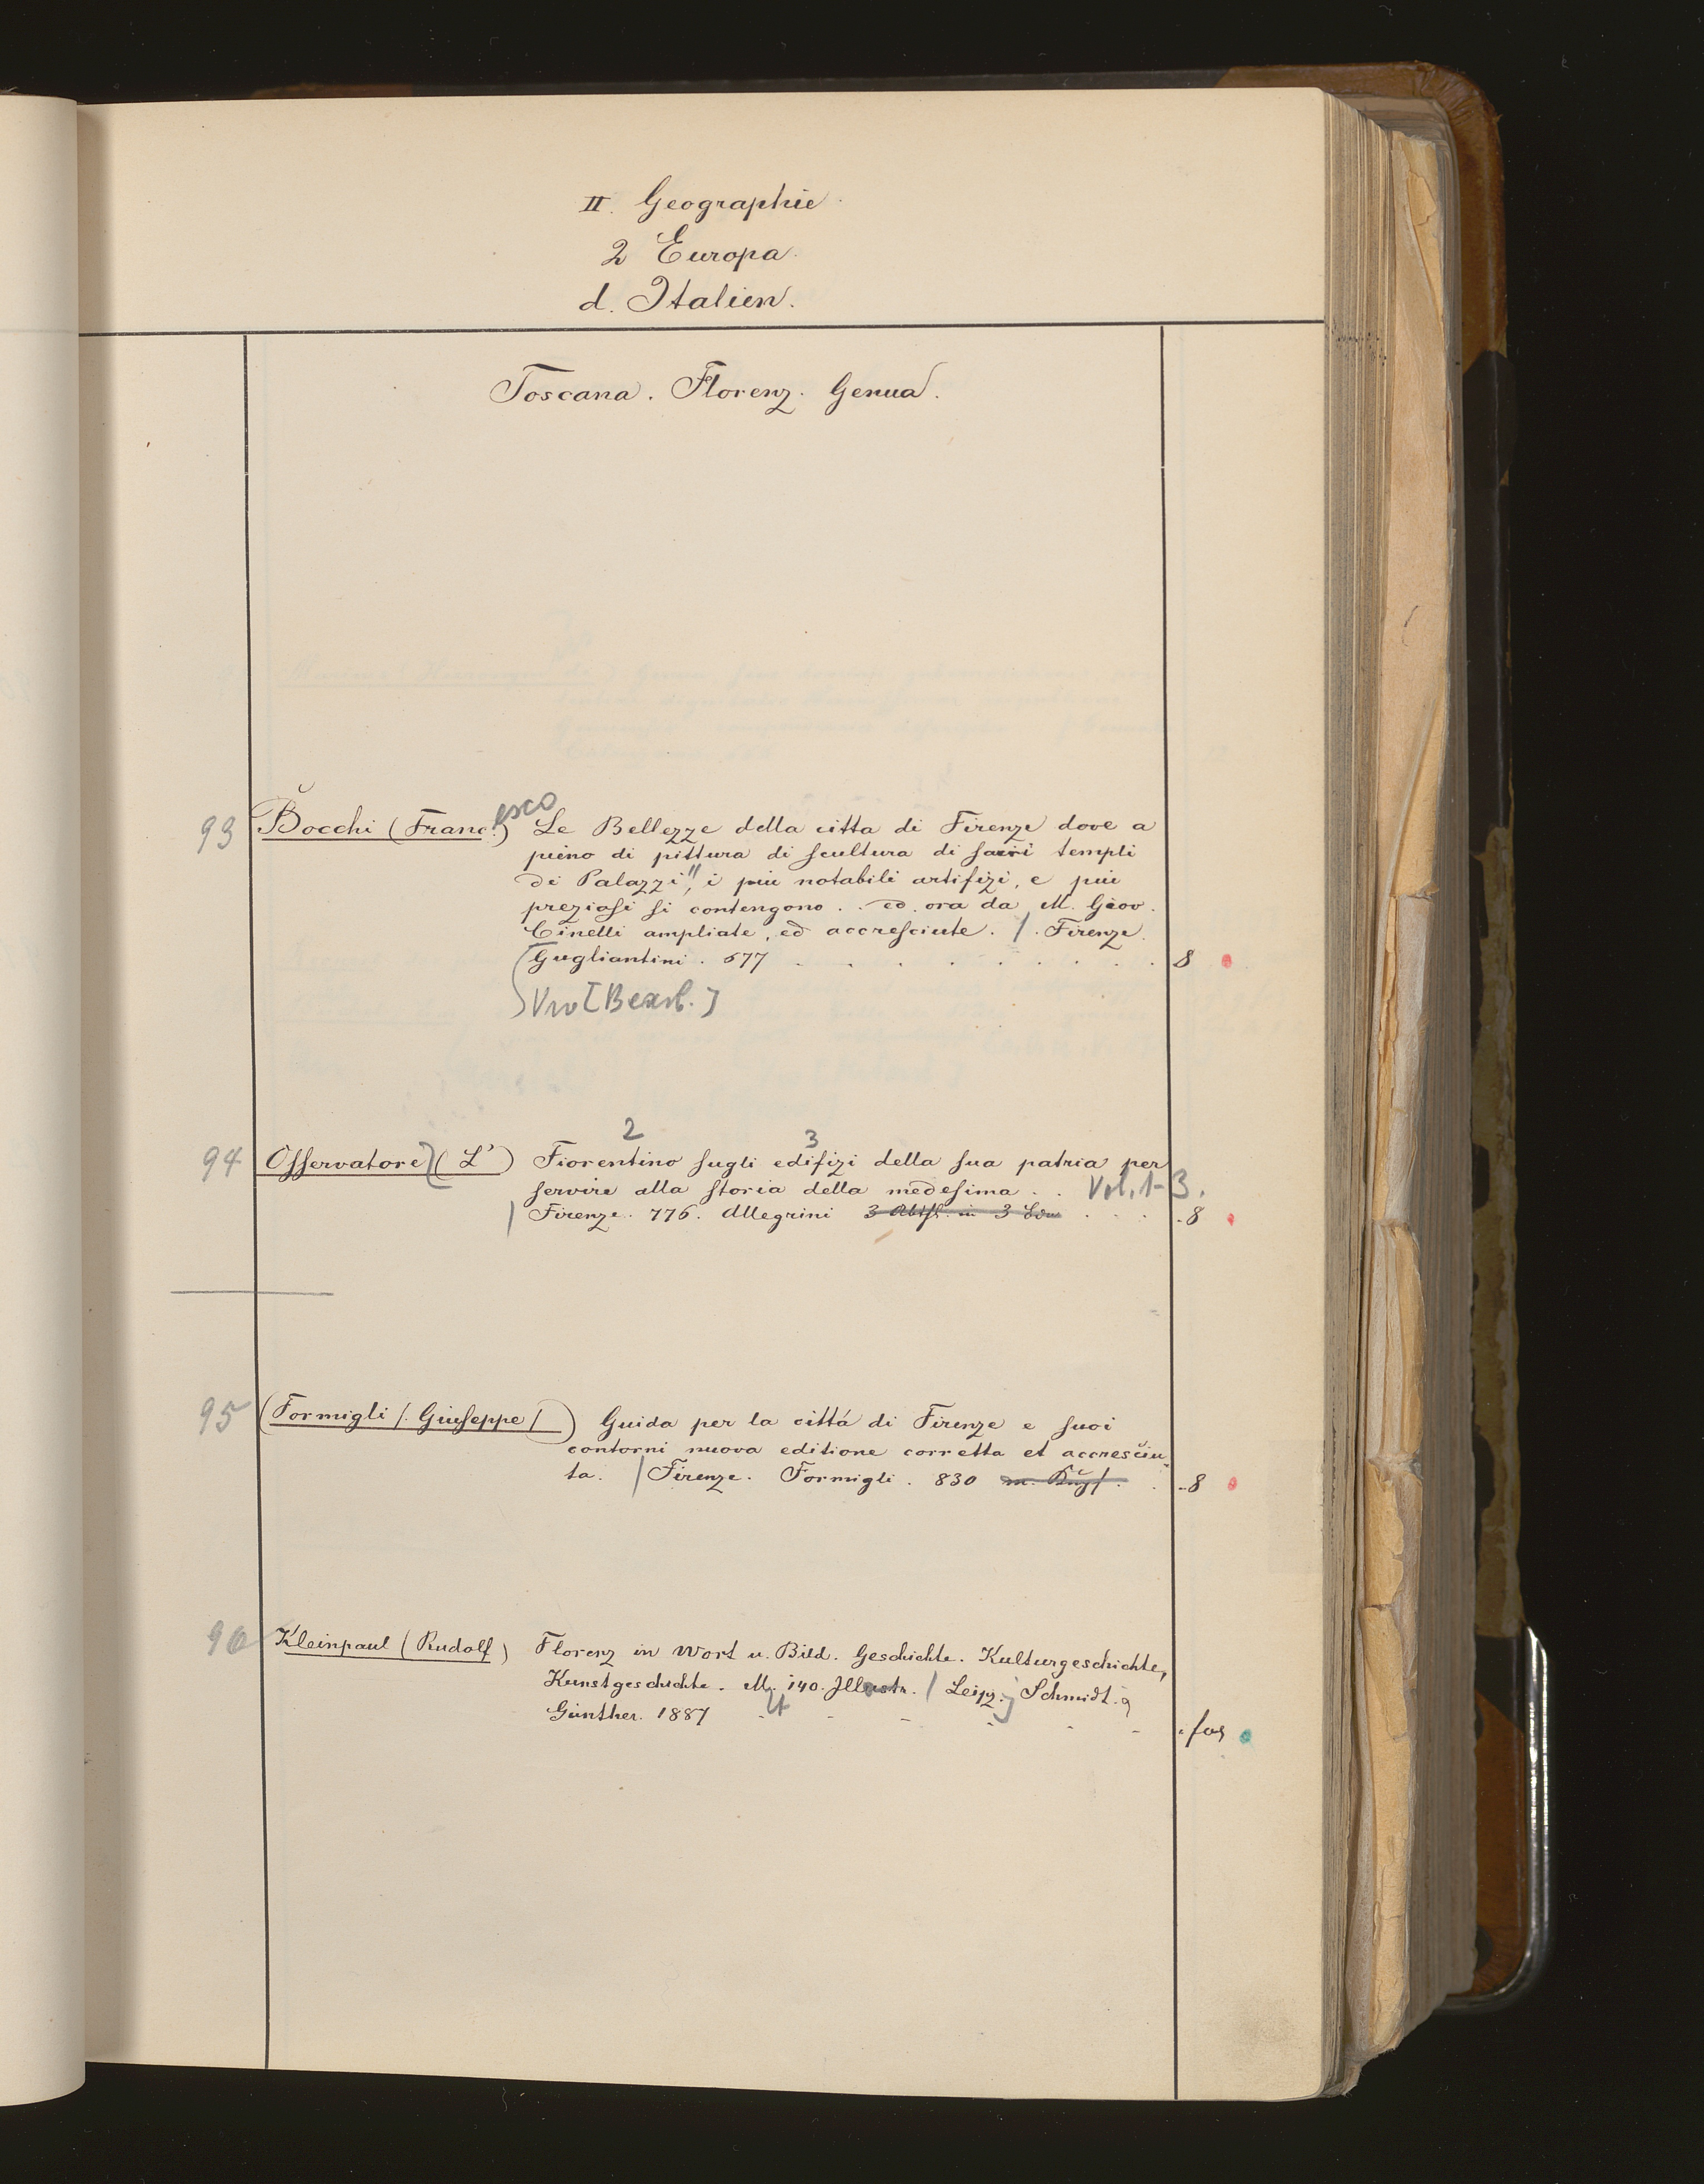 II. Geographie
2 Europa
d. Italien.
Toscana. Florenz. Genua.
93 Bocchi (Franc.esco) Le Bellezze della citta di Firenze dove a
pieno di pittura di scultura di sacri templi
di Palazzi", i piu notabili artifizi, e piu
preziosi si contengono . . ed. ora da M. Giov.
Cinelli ampliate, ed accresciute. /. Firenze.
Gugliantini. 677 8
[Bearb.]
94 Osservatore (L') Fiorentino sugli edifizi della sua patria per
2 3
servire alla storia della medesima . . Vol. 1-3.
/ Firenze. 776. Allegrini 3 Abth. in 3 Bdn 8
95 (Formigli /. Giuseppe /) Guida per la cittá di Firenze e suoi
contorni nuova editione corretta et accresciu-
ta. / Firenze. Formigli. 830 m. Kupf. 8
96 Kleinpaul (Rudolf) Florenz in Wort u. Bild. Geschichte. Kulturgeschichte,
Kunstgeschichte. M. 140. Illustr. / Leipz. Schmidt. &
Günther. 1887 fol